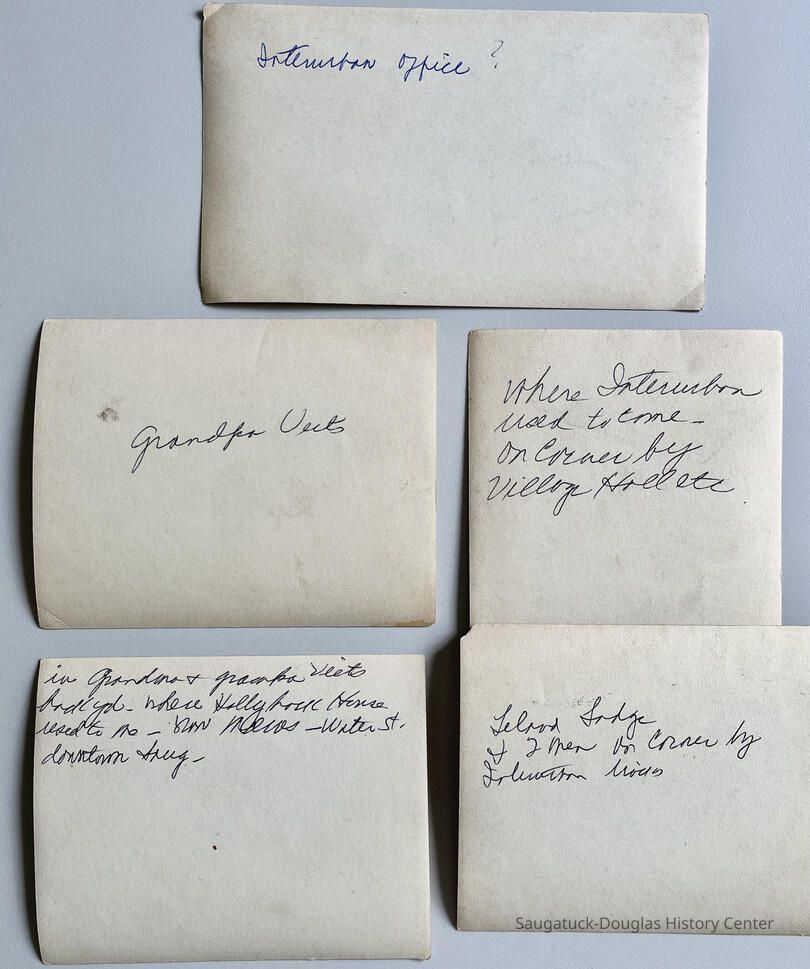 Interurban office ?
Grandpa Veits
Where Interurban
used to come -
on Corner by
Village Hall etc
in Grandma + grandpa Veits
backyd - where Hollyhock House
used to be - now News - Water St.
downtown Saug -
Leland Lodge
& 2 men on Corner by
Interurban
Saugatuck-Douglas History Center